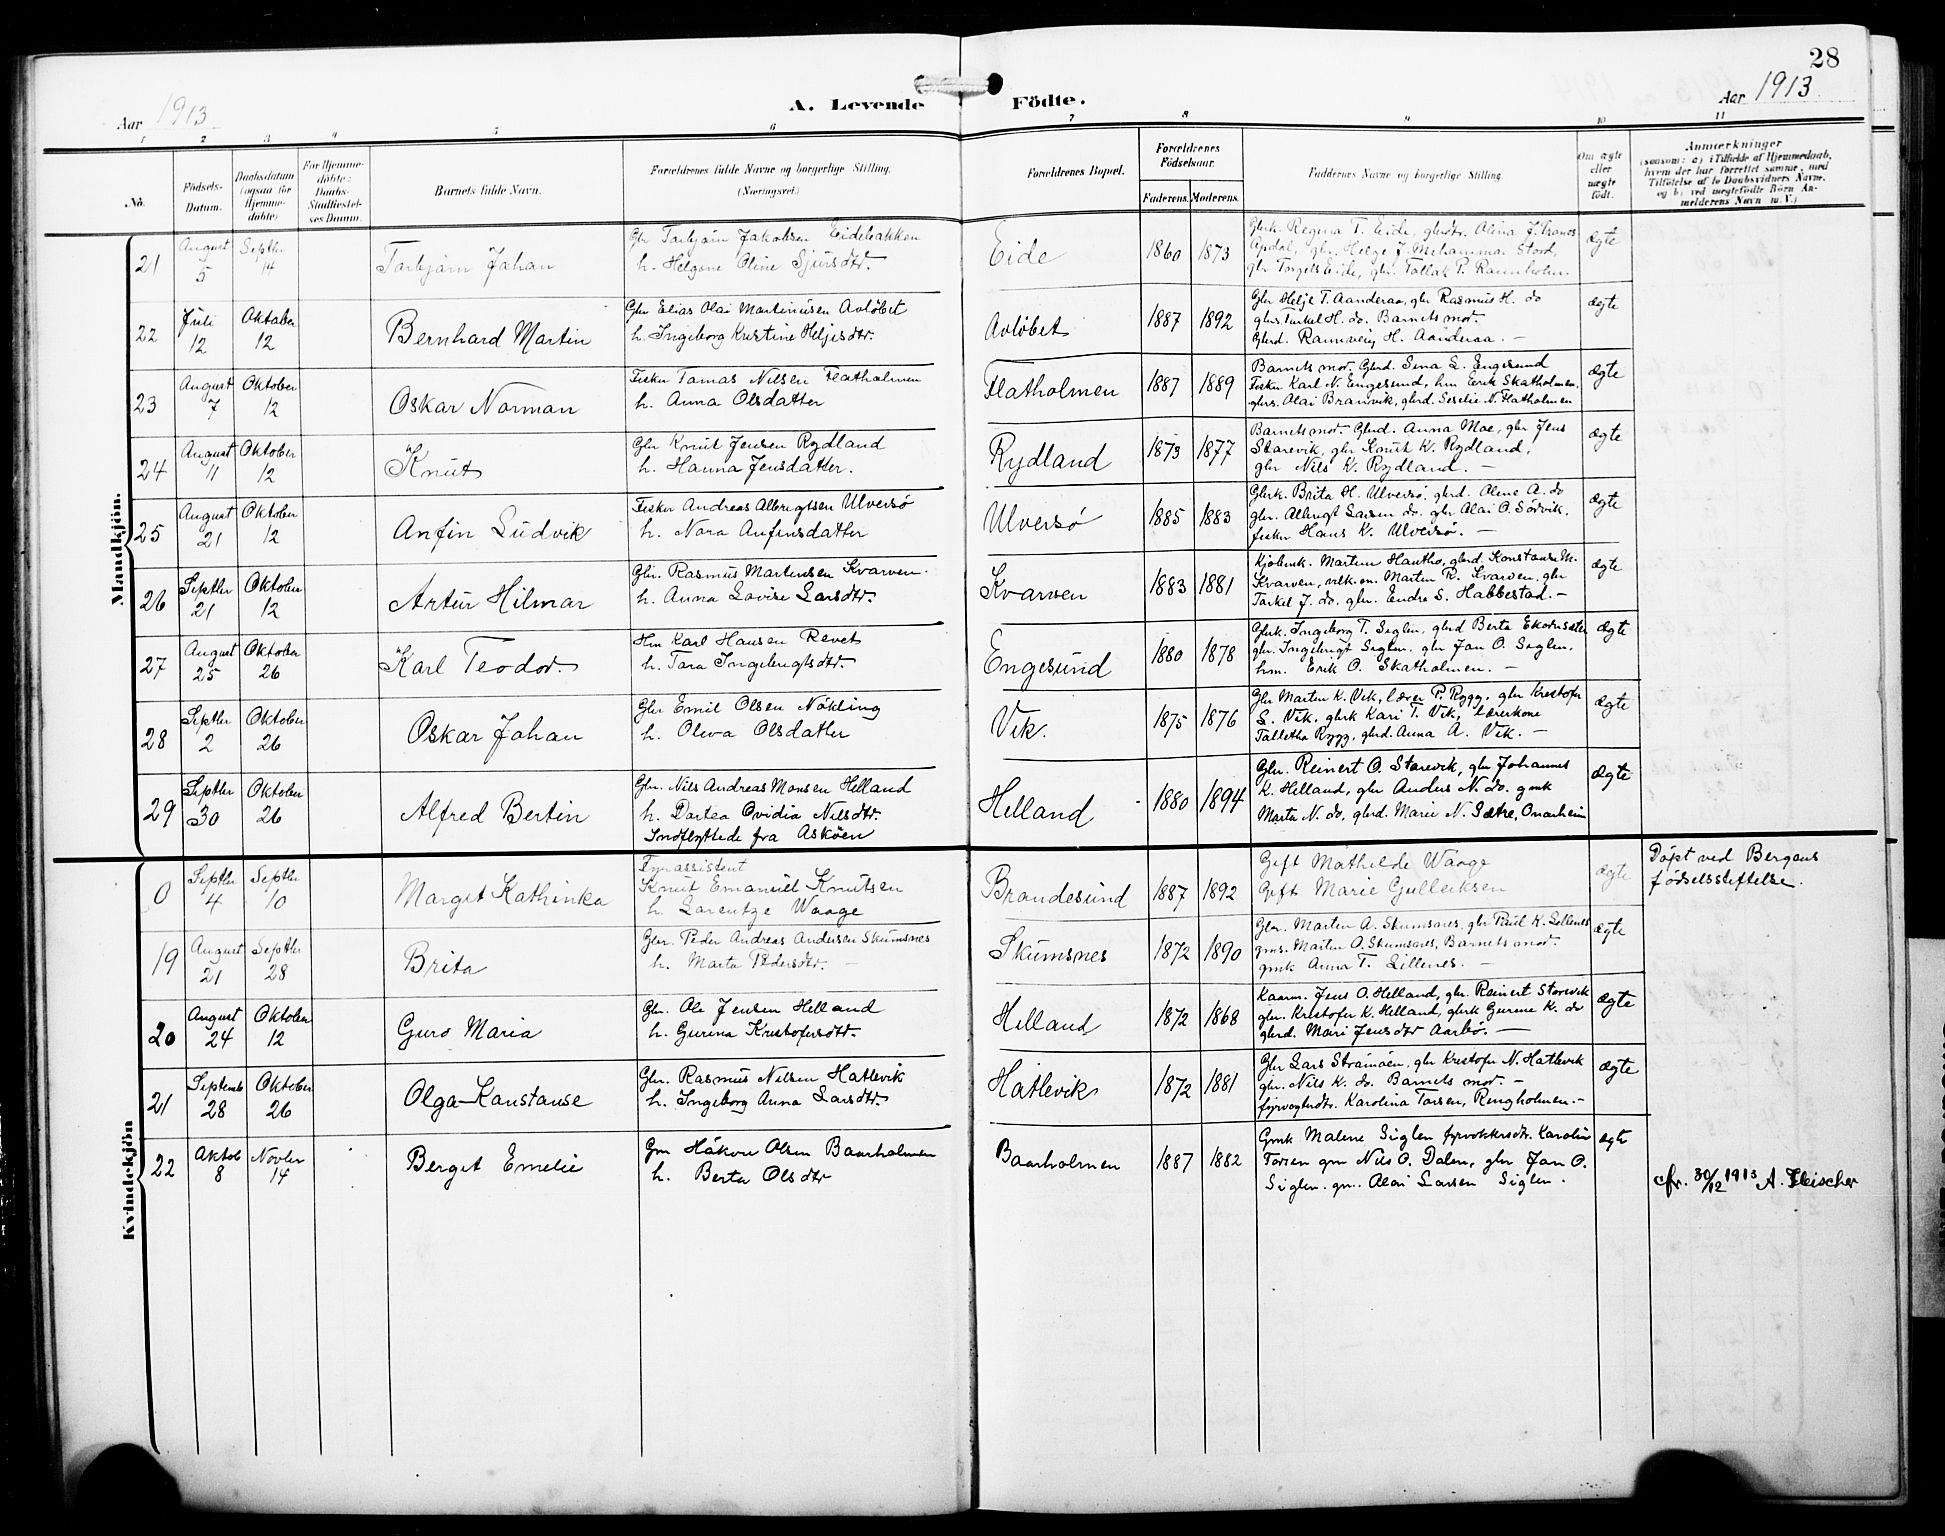 28
Aar 1913
A. Levende Födte.
Aar 1913
1 2 3 4 5 6 7 8 9 10 11
No.
Födsels-Datum.
Daabsdatum (ogsaa for Hjemme-döbte)
For Hjemme-döbte: Daabs-Stadfæstel-ses Datum.
Barnets fulde Navn.
Forældrenes fulde Navne og borgerlige Stilling.
(Næringsvei.)
Forældrenes Bopæl.
Forældrenes Födselsaar.
Faderens. Moderens.
Faddernes Navne og borgerlige Stilling.
Om ægte eller uægte födt.
Anmærkninger
(saasom: a) i Tilfælde af Hjemmedaab,
hvem der har forrettet samme, med
Tilföielse af to Daabsvidners Navne,
og b) ved uægtefödte Börn An-
melderens Navn m. V.)
Mandkjön.
21 August 5 Septbr 14 Torbjörn Johan
Gbr Torbjörn Jakobsen Eidebakken
h. Helgone Oline Sjursdtr.
Eide 1860 1873
Gbrk. Regina T. Eide, gbrdtr. Alina J. Trones
Apdal, gbr. Helge J. Mehammar Stord,
gbr Torgels Eide, gbr. Tollak P. Ravnholm.
ægte
22 Juli 12 Oktober 12 Bernhard Martin
Gbr Elias Olai Martinusen Avlöbet
h. Ingeborg Kristine Heljesdtr.
Avlöbet 1887 1892
Gbr Helje T. Aanderaa, gbr Rasmus H. do
gbrs. Torkel H. do. Barnets mor.
Gbrd. Rannveig H. Aanderaa. —
ægte
23 August 7 Oktober 12 Oskar Norman
Fisker Tomas Nilsen Flatholmen
h. Anna Olsdatter
Flatholmen 1887 1889
Barnets mor. Gbrd. Sina L. Engesund
Fisker Karl N. Engesund, hm Eerik Skatholmen,
gbrs. Olai Brannvik, gbrd. Serelie N. Flatholmen
ægte
24 August 11 Oktober 12 Knut
Gbr Knut Jensen Rydland
h. Hanna Jensdatter.
Rydland 1873 1877
Barnets mor. Gbrd. Anna Moe, gbr Jens
Starevik, gbr Knut K. Rydland,
gbr Nils K. Rydland. —
ægte
25 August 21 Oktober 12 Anfin Ludvik
Fisker Andreas Albregtsen Ulversö
h. Nora Anfinsdatter
Ulversö 1885 1883
Gbrk. Brita H. Ulversö, gbrd. Oline A. do
gbr. Albregt Larsen do. gbr Olai O. Sörvik,
fisker Hans K. Ulversö. —
ægte
26 Septbr 21 Oktober 12 Artur Hilmar
Gbr. Rasmus Martinsen Kvarven.
h. Anna Lovise Larsdtr.
Kvarven 1883 1881
Kjöbmk. Martine Hauthö, gbrd. Konstanse M.
Kvarven, Martin R. Kvarven, gbr
Torkel J. do, gbr. Endre S. Habbestad. —
ægte
27 August 25 Oktober 26 Karl Teodor
Hm Karl Hansen Revet
h. Tora Ingebrigtsdtr.
Engesund 1880 1878
Gbrk. Ingeborg T. Siglen, gbrd Berta Ekornsæter
gbr. Ingebrigt Siglen, gbr Jon O. Siglen,
hm. Erik O. Skatholmen. —
ægte
28 Septbr 2 Oktober 26 Oskar Johan
Gbr Emil Olsen Nökling
h. Oleva Olsdatter
Vik. 1875 1876
Gbr Martin K. Vik, lærer P. Rygg, gbr Kristofer
S. Vik. gbrk Kari T. Vik, lærerkone
Talletha Rygg, gbrd. Anna A. Vik. —
ægte
29 Septbr 30 Oktober 26 Alfred Bertin
Gbr. Nils Andreas Monsen Helland
h. Dortea Ovidia Nilsdtr.
Indflyttede fra Asköen
Helland 1880 1894
Gbr. Reinert O. Starevik, gbr Johannes
K. Helland, gbr Anders N. do. gmk
Marta N. do, gbrd. Marie N. Sætre, Onarheim
ægte
Kvindekjön
0 Septbr 4 Septbr 10 Margit Kathinka
Fyrassistent
Knut Emanuel Knutsen
h. Lorentze Waage
Brandesund 1887 1892
Gift Mathilde Waage
Gift Marie Gulleiksen
ægte
Döpt ved Bergens
födselsstiftelse.
19 August 21 Septbr 28 Brita
Gbr. Peder Andreas Andersen Skumsnes
h. Marta Pedersdtr. —
Skumsnes 1872 1890
Gbr. Martin A. Skumsnes, gbr Paul K. Lillenes
gms. Martin O. Skumsnes, Barnets mor.
gmk Anna T. Lillenes. —
ægte
20 August 24 Oktober 12 Guro Maria
Gbr. Ole Jensen Helland
h. Gurina Kristofersdtr.
Helland 1872 1868
Kaarm. Jens O. Helland, gbr. Reinert Starevik
gbr. Kristofer K. Helland, gbrk Gurine K. do
gbrd. Mari Jensdtr Aarbö. —
ægte
21 Septemb 28 Oktober 26 Olga Konstanse
Gbr. Rasmus Nilsen Hatlevik
h. Ingeborg Anna Larsdtr.
Hatlevik 1872 1881
Gbr Lars Strömöen, gbr Kristofer N. Hatlevik
gbr. Nils K. do. Barnets mor. —
fyrvogterdtr. Karolina Torsen, Ringholmen. —
ægte
22 Oktob 8 Novbr 14 Berget Emelie
Gm Håkon Olsen Baarholmen
h. Berta Olsdtr
Baarholmen 1887 1882
Gmk Malene Siglen fyrvokterdtr. Karolin
Torsen gm Nils O. Dalen, gbr Jon O.
Siglen. gm. Olai Larsen Siglen.
ægte
cfr. 30/12 1913 A. Fleischer